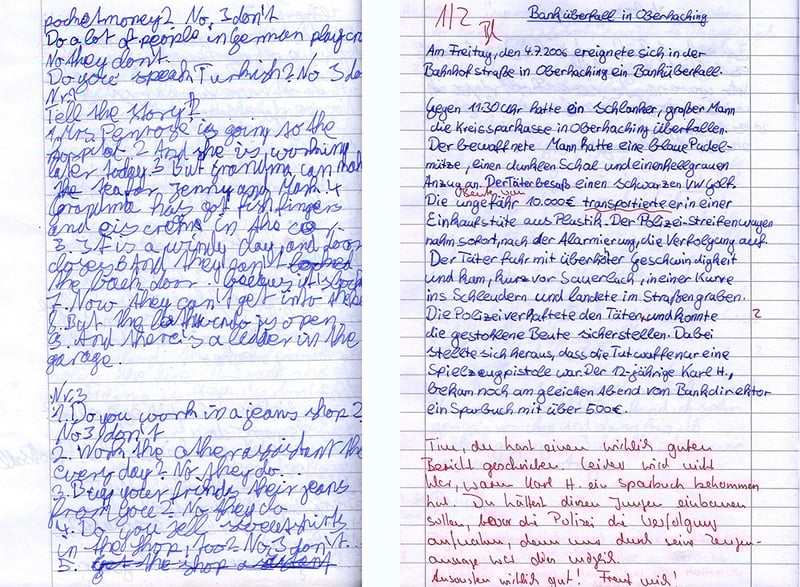 pocketmoney? No, I don't
Do a lot of people in German play cri
No they don't.
Do you speak Turkish? No I do
Nr.2
Tell the story!
1. Mrs Penrose is going to the
hospital 2 And she is working
later today 3 But Grandma can mak
the tea for Jenny and Mark 4
Grandma has got fish fingers
and in the
It is a windy day and door
closes 6 And they can't
the back door.
7. Now they can't get into the
8. But the is open
9. And there is a ladder in the
garage.
Nr.3
1. Do you work in a jeans shop?
No I don't
2. Work the other assistant the
every day? No they do...
3. Buy your friends their jeans
from you? No they do
4. Do you sell sweatshirts
in the shop, too? No, I don't...
5. the shop
1/2
Banküberfall in Oberhaching
Am Freitag, den 4.7.2006 ereignete sich in der
Bahnhofstraße in Oberhaching ein Banküberfall.
Gegen 11:30 Uhr hatte ein schlanker, großer Mann
die Kreissparkasse in Oberhaching überfallen.
Der bewaffnete Mann hatte eine blaue Pudel-
mütze, einen dunklen Schal und einen hellgrauen
Anzug an. Der Täter besaß einen schwarzen VW Golf.
Beute von
Die ungefähr 10.000€ transportierte er in einer
Einkaufstüte aus Plastik. Der Polizei-Streifenwagen
nahm sofort, nach der Alarmierung, die Verfolgung auf.
Der Täter fuhr mit überhöter Geschwindigkeit
und kam, kurz vor Sauerlach, in einer Kurve
ins Schleudern und landete im Straßengraben.
Die Polizei verhaftete den Täter und konnte
die gestohlene Beute sicherstellen. Dabei
stellte sich heraus, dass die Tatwaffe nur eine
Spielzeugpistole war. Der 12-jährige Karl H.,
bekam noch am gleichen Abend vom Bankdirektor
ein Sparbuch mit über 500€.
Tim, du hast einen wirklich guten
Bericht geschrieben. Leider wird nicht
klar, warum Karl H. ein Sparbuch bekommen
hat. Du hättest diesen Jungen einbauen
sollen, bevor die Polizei die Verfolgung
aufnahm, denn nur durch seine Zeugen-
aussage war dies möglich.
Ansonsten wirklich gut! Freut mich!